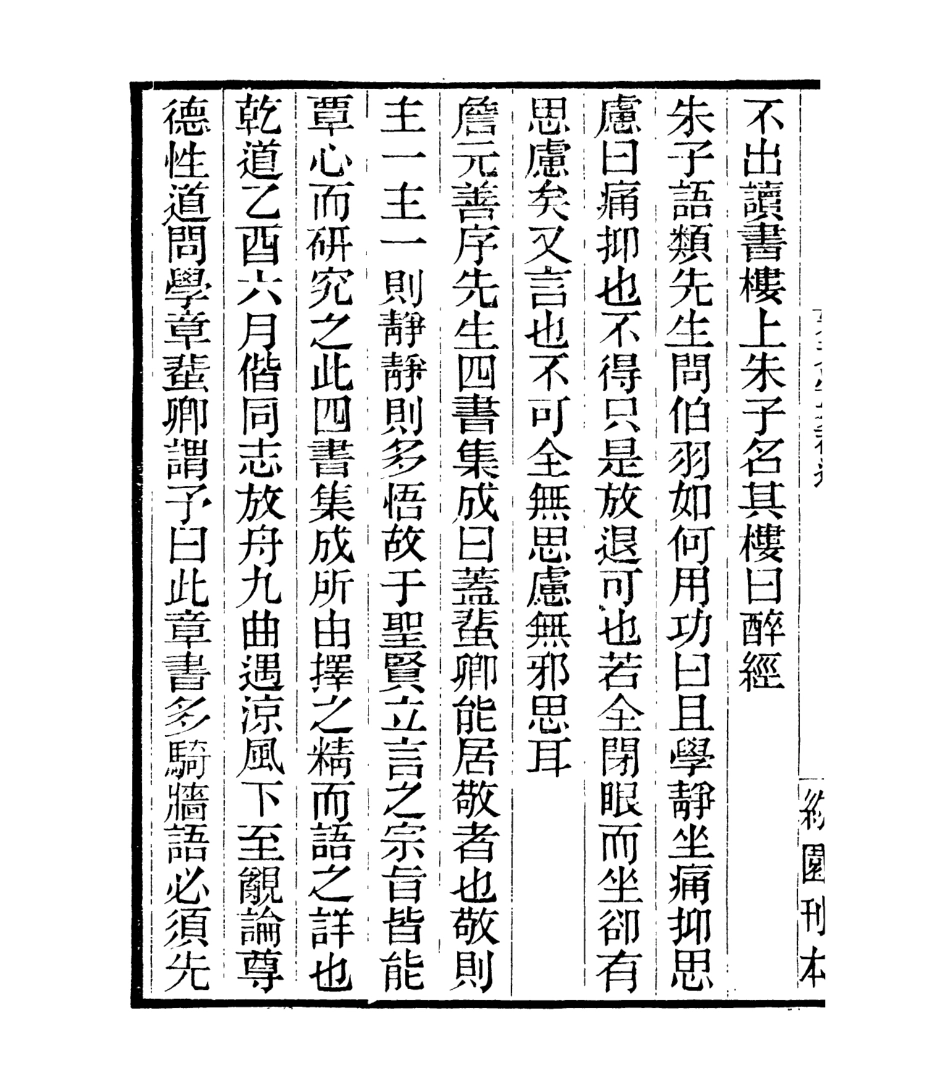 不出讀書樓上朱子名其樓曰醉經
朱子語類先生問伯羽如何用功曰且學靜坐痛抑思
慮曰痛抑也不得只是放退可也若全閉眼而坐卻有
思慮矣又言也不可全無思慮無邪思耳
詹元善序先生四書集成曰蓋蜚卿能居敬者也敬則
主一主一則靜靜則多悟故于聖賢立言之宗旨皆能
覃心而研究之此四書集成所由擇之精而語之詳也
乾道乙酉六月偕同志放舟九曲遇涼風下至觬論尊
德性道問學章蜚卿謂予曰此章書多騎牆語必須先
約園刊本